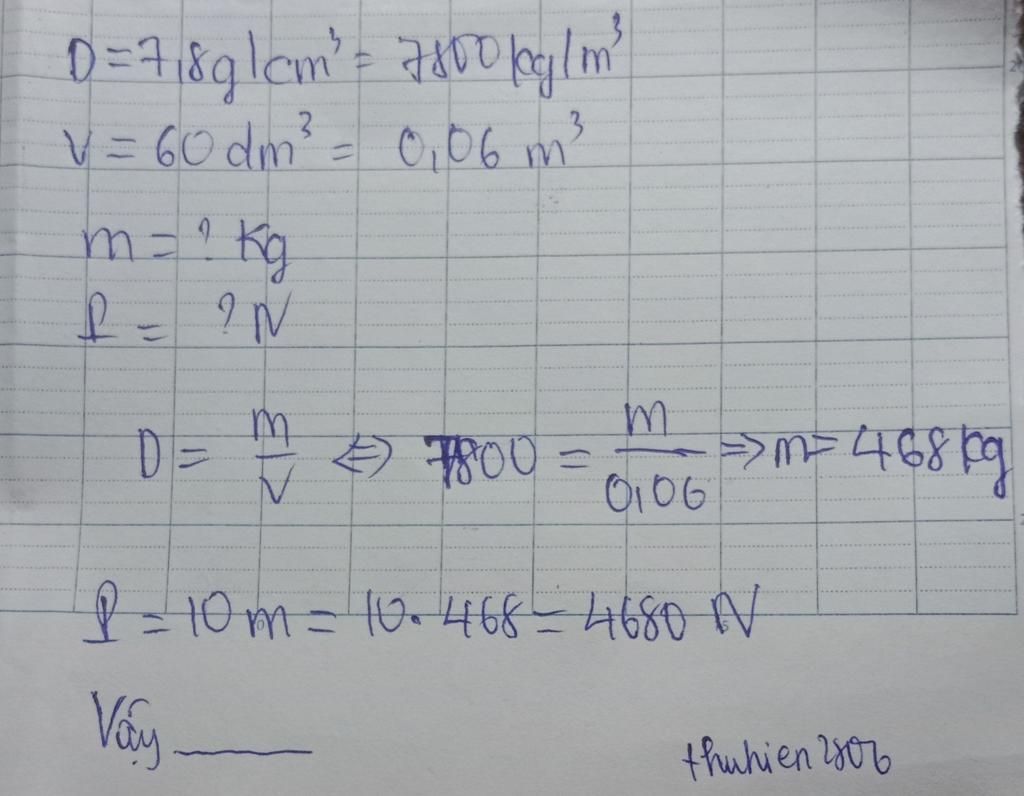 D = 7,8g/cm³ = 7800kg/m³
V = 60 dm³ = 0,06 m³
m = ? Kg
P = ? N
D = m/V ⇔ 7800 = m/0,06 ⇒ m = 468 kg
P = 10 m = 10. 468 = 4680 N
Vậy ______
thuhien2806